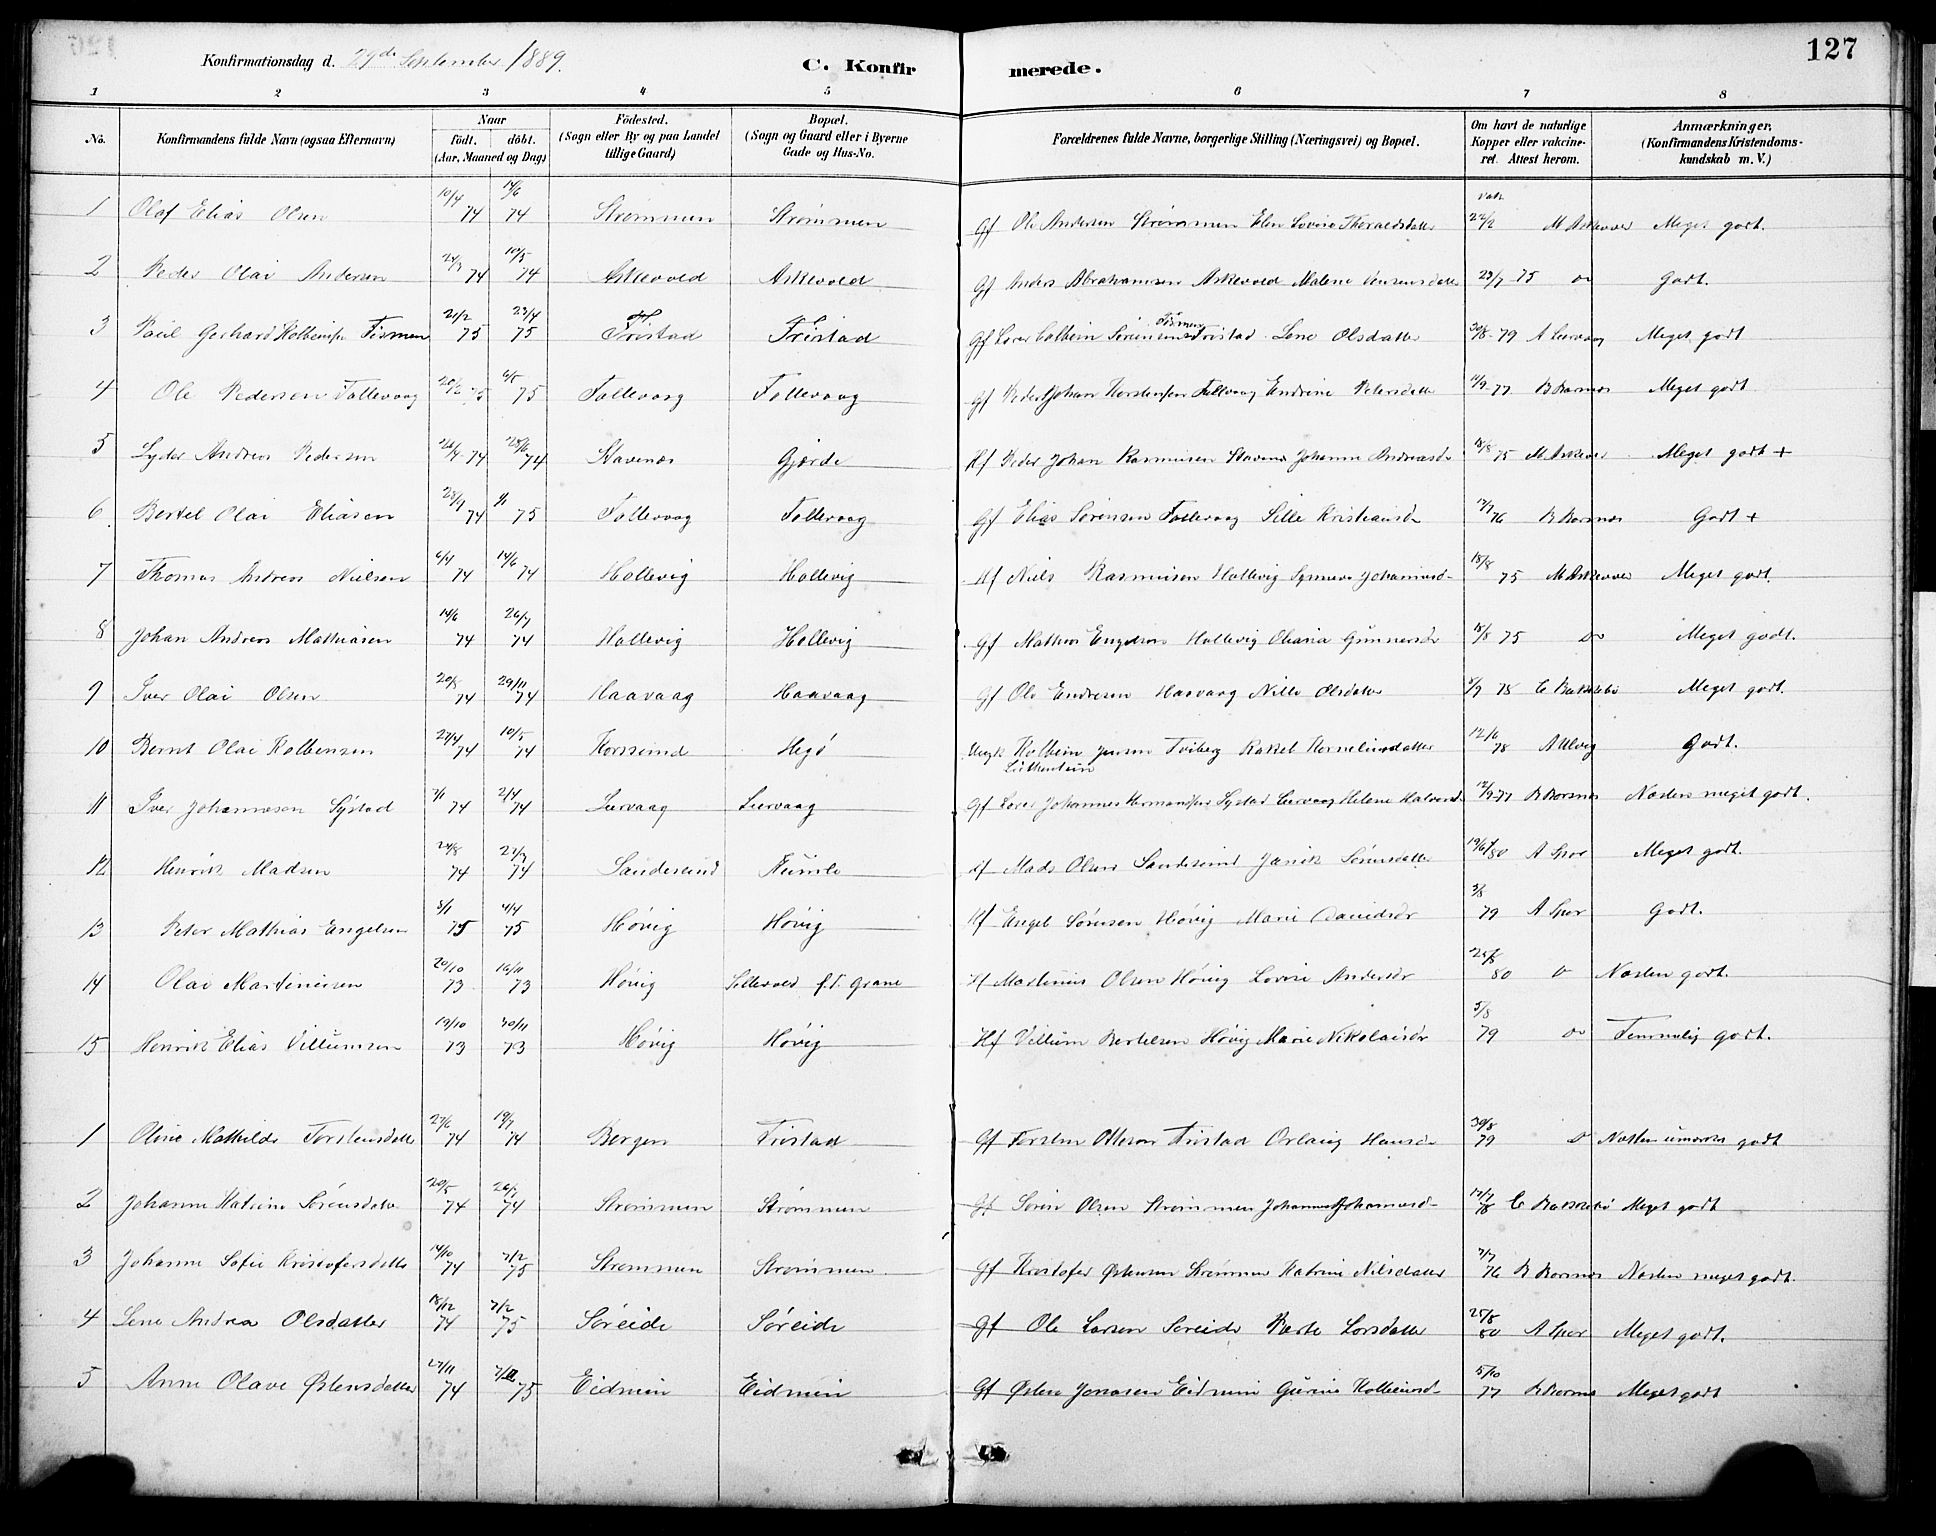 127
Konfirmationsdag d. 29de September 1889.
C. Konfirmerede.
1 2 3 4 5 6 7 8
No. Konfirmandens fulde Navn (ogsaa Efternavn) Naar født. døbt. (Aar, Maaned og Dag) Fødested. (Sogn eller By og paa Landet tillige Gaard) Bopæl. (Sogn og Gaard eller i Byerne Gade og Hus-No. Forældrenes fulde Navne, borgerlige Stilling (Næringsvei) og Bopæl. Om havt de naturlige Kopper eller vakcineret. Attest herom. Anmærkninger, (Konfirmandens Kristendomskundskab m. V.)
1 Olaf Elias Olsen 10/4 74 14/6 74 Strømmen Strømmen Gf Ole Andersen Strømmen Elen Lovise Thoraldsdatter vak. 22/2 M Askevold Meget godt.
2 Peder Olai Andersen 24/3 74 10/5 74 Askevold Askevold Gf Anders Abrahamsen Askevold Malene 29/7 75 do Godt.
3 Paul Gerhard Kolbeinsen Tismen 21/2 75 23/4 75 Tristad Tristad Gf Kolbein Sørensen Tristad Lene Olsdatter 30/8 79 A Leervaag Meget godt
4 Ole Pedersen Follevaag 20/2 75 6/5 75 Follevaag Follevaag Gf Peder Johan Torstensen Follevaag Endrine Petersdatter 11/9 77 R Rornes Meget godt
5 Lyder Andreas Pedersen 26/4 74 28/6 74 Stavenes Gjerde Hf Peder Johan Rasmusen Stavenes Johanne Andreasdr 18/8 75 M Askevold Meget godt +
6 Bertel Olai Eliasen 28/9 74 1/1 75 Follevaag Follevaag Gf Elias Sørensen Follevaag Sille Kristiansdr 12/9 76 R Rornes Godt +
7 Thomas Andreas Nielsen 6/4 74 14/6 74 Hollevig Hollevig Hf Niels Rasmusen Hollevig Synneve Johannesd. 18/8 75 M Askevold Meget godt.
8 Johan Andreas Mathiasen 14/6 74 26/7 74 Hollevig Hollevig Gf Mathias Engelsen Hollevig Oliana Gunnersdr 18/8 75 Do Meget godt.
9 Iver Olai Olsen 20/8 74 29/11 74 Haavaag Haavaag Gf Ole Endresen Haavaag Nille Olsdatter 3/9 78 C Bakkebø Meget godt.
10 Bernt Olai Kolbensen 27/4 74 10/5 74 Korssund Hegø Ungk Kolbein Jensen Tviberg Rakel Korneliusdatter 12/6 78 A Ulvig Godt.
11 Iver Johannesen Systad 7/1 74 2/4 74 Leervaag Leervaag Gf Johannes Hermansen Systad Leervaag Helene Halvorsd 12/9 77 R Rornes Næsten meget godt.
12 Henrik Madsen 24/8 74 27/9 74 Sandesund Rumle Gf Mads Olsen Sandesund Janik Sørensdatter 19/6 80 A Spor Meget godt.
13 Peter Mathias Engelsen 3/1 75 4/4 75 Høvig Høvig Hf Engel Sørensen Høvig Marie Davidsdr 3/8 79 A Spor Godt.
14 Olai Martinusen 20/10 73 16/11 73 Høvig f.T. Grane Hf Martinus Olsen Høvig Lovise Andersdr 25/8 80 D Næsten godt.
15 Henrik Elias Villumsen 19/10 73 30/11 73 Høvig Høvig Hf Villum Bertelsen Høvig Marie Nikolaisdr 5/8 79 Do Temmelig godt.
1 Oline Mathilde Torstensdatter 27/6 74 19/7 74 Bergen Tristad Gf Torsten Otteson Tristad Orlaug Hansdr 30/8 79 D Næsten godt
2 Johanne Katrine Sørensdatter 20/5 74 26/7 74 Strømmen Strømmen Gf Søren Olsen Strømmen Johanne Johannesd. 17/7 78 C Bakkebø Meget godt
3 Johanne Sofie Kristofersdatter 14/10 74 7/2 75 Strømmen Strømmen Gf Kristofer Østensen Strømmen Katrine Nilsdatter 7/7 76 R Rornes Næsten meget godt.
4 Lene Andrea Olsdatter 18/12 74 7/2 75 Søreide Søreide Gf Ole Larsen Søreide Berte Larsdatter 25/8 80 A Spor Meget godt.
5 Anne Olave Østensdatter 27/11 74 75 Eidmen Eidmen Gf Østen Jonasen Eidmen Gurine Kolbeinsd. 5/10 77 R Rornes Meget godt